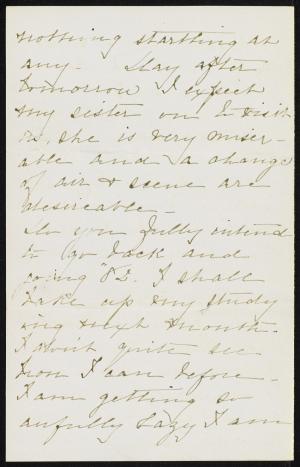 nothing startling at
any - Day after
tomorrow I expect
my sister on to visit
us, she is very miser-
able and a change
of air & scene are
desireable -
Do you fully intend
to go back and
going '82. I shall
take up my study
ing next month.
I don't quite see
how I can before -
I am getting so
awfully lazy I am